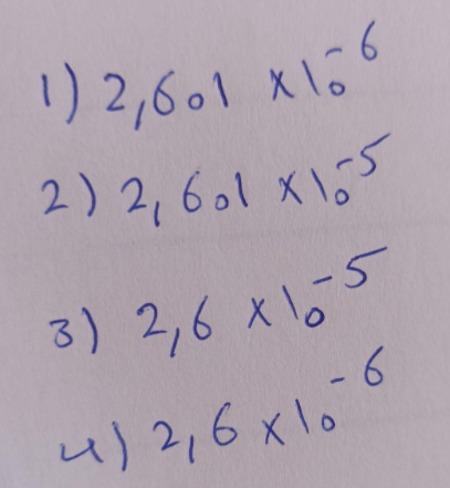 1) 2,601 x10^-6
2) 2,601 x10^-5
3) 2,6 x10^-5
4) 2,6 x10^-6